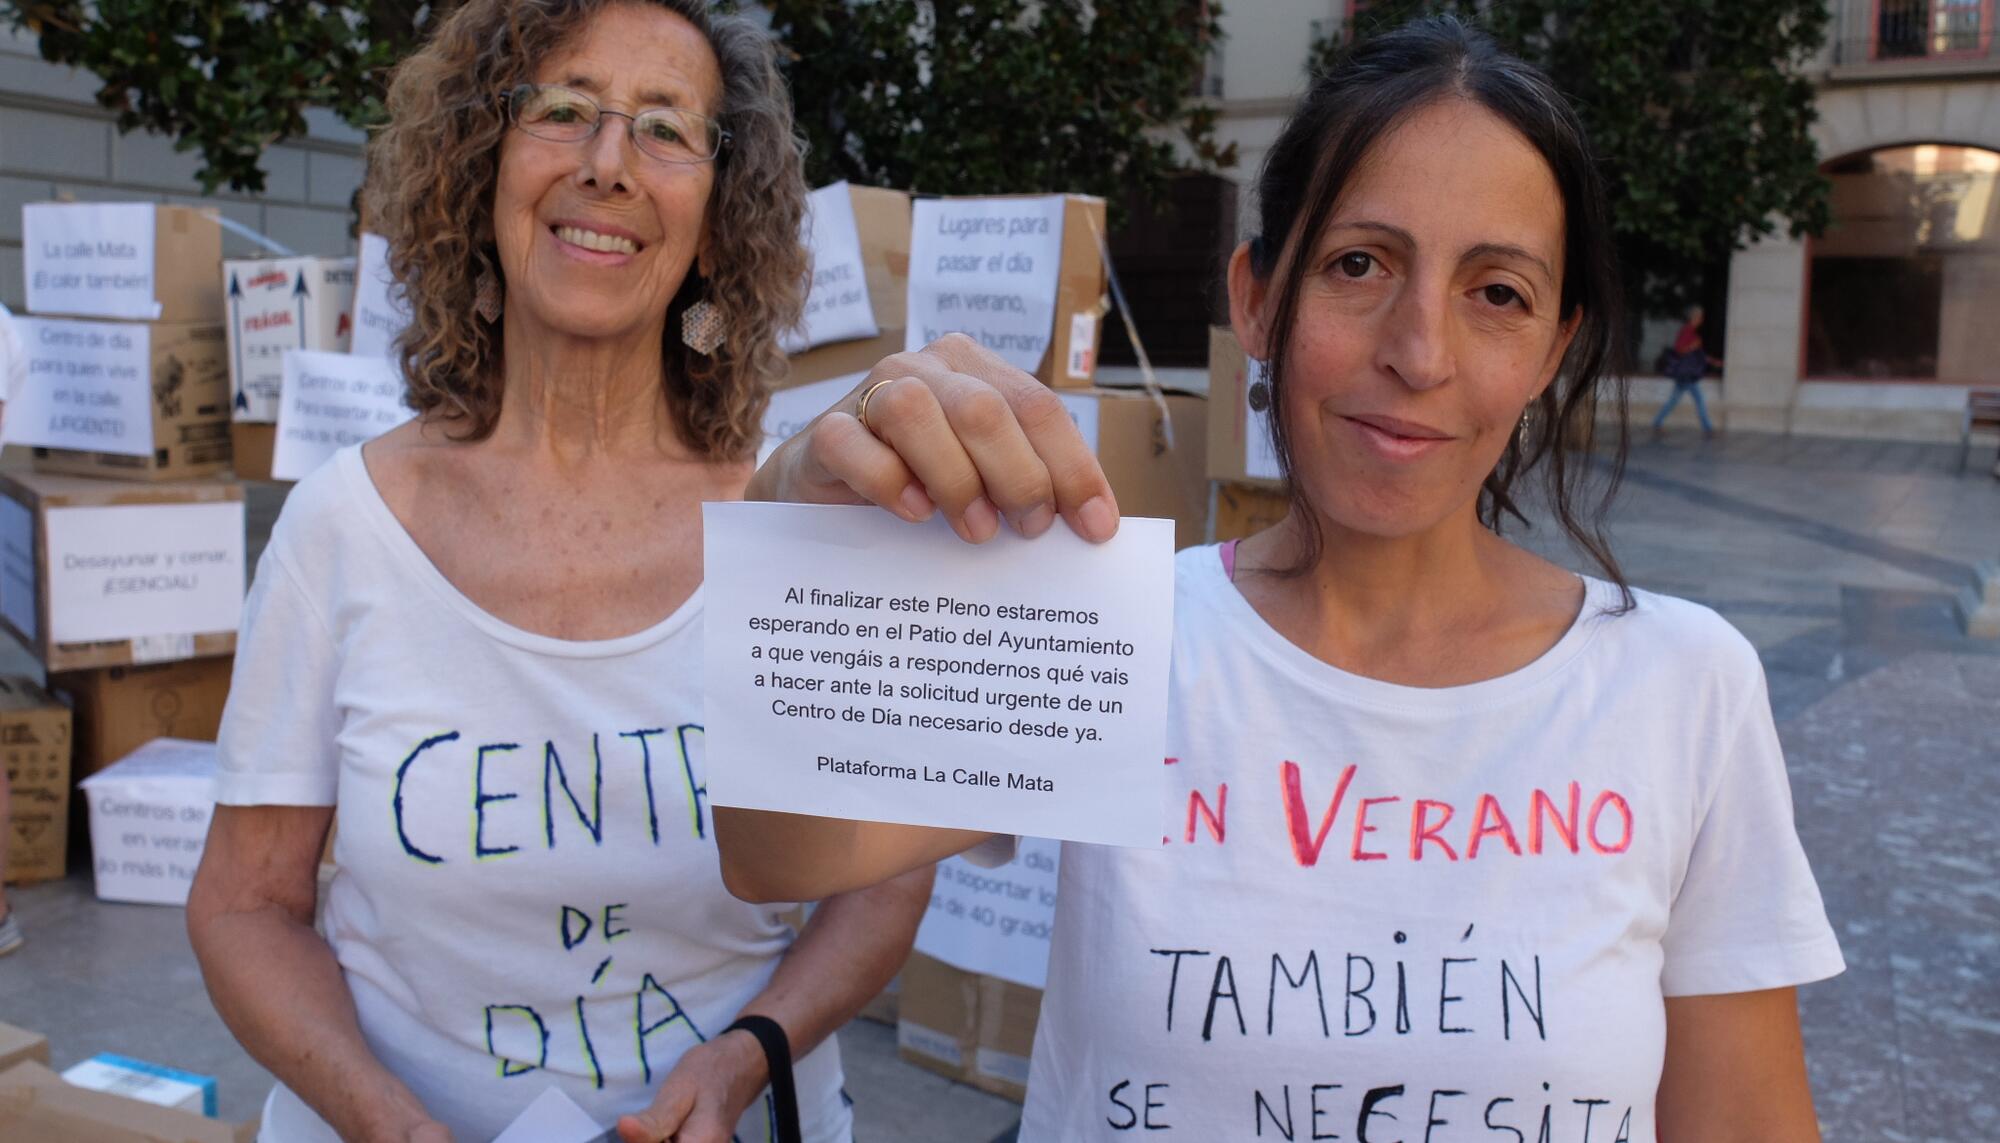 La calle Mata
¡El calor también!
Centro de día
para quien vive
en la calle
¡URGENTE!
FRÁGIL
Centros de día
Para soportar los
más de 40 grados
Lugares para
pasar el día
en verano,
lo más humano
Desayunar y cenar,
¡ESENCIAL!
Centros de
en verano
lo más hu
Al finalizar este Pleno estaremos
esperando en el Patio del Ayuntamiento
a que vengáis a respondernos qué vais
a hacer ante la solicitud urgente de un
Centro de Día necesario desde ya.
Plataforma La Calle Mata
CENTR
DE
DÍA
EN VERANO
TAMBIÉN
SE NECESITA
día
soportar lo
de 40 grado